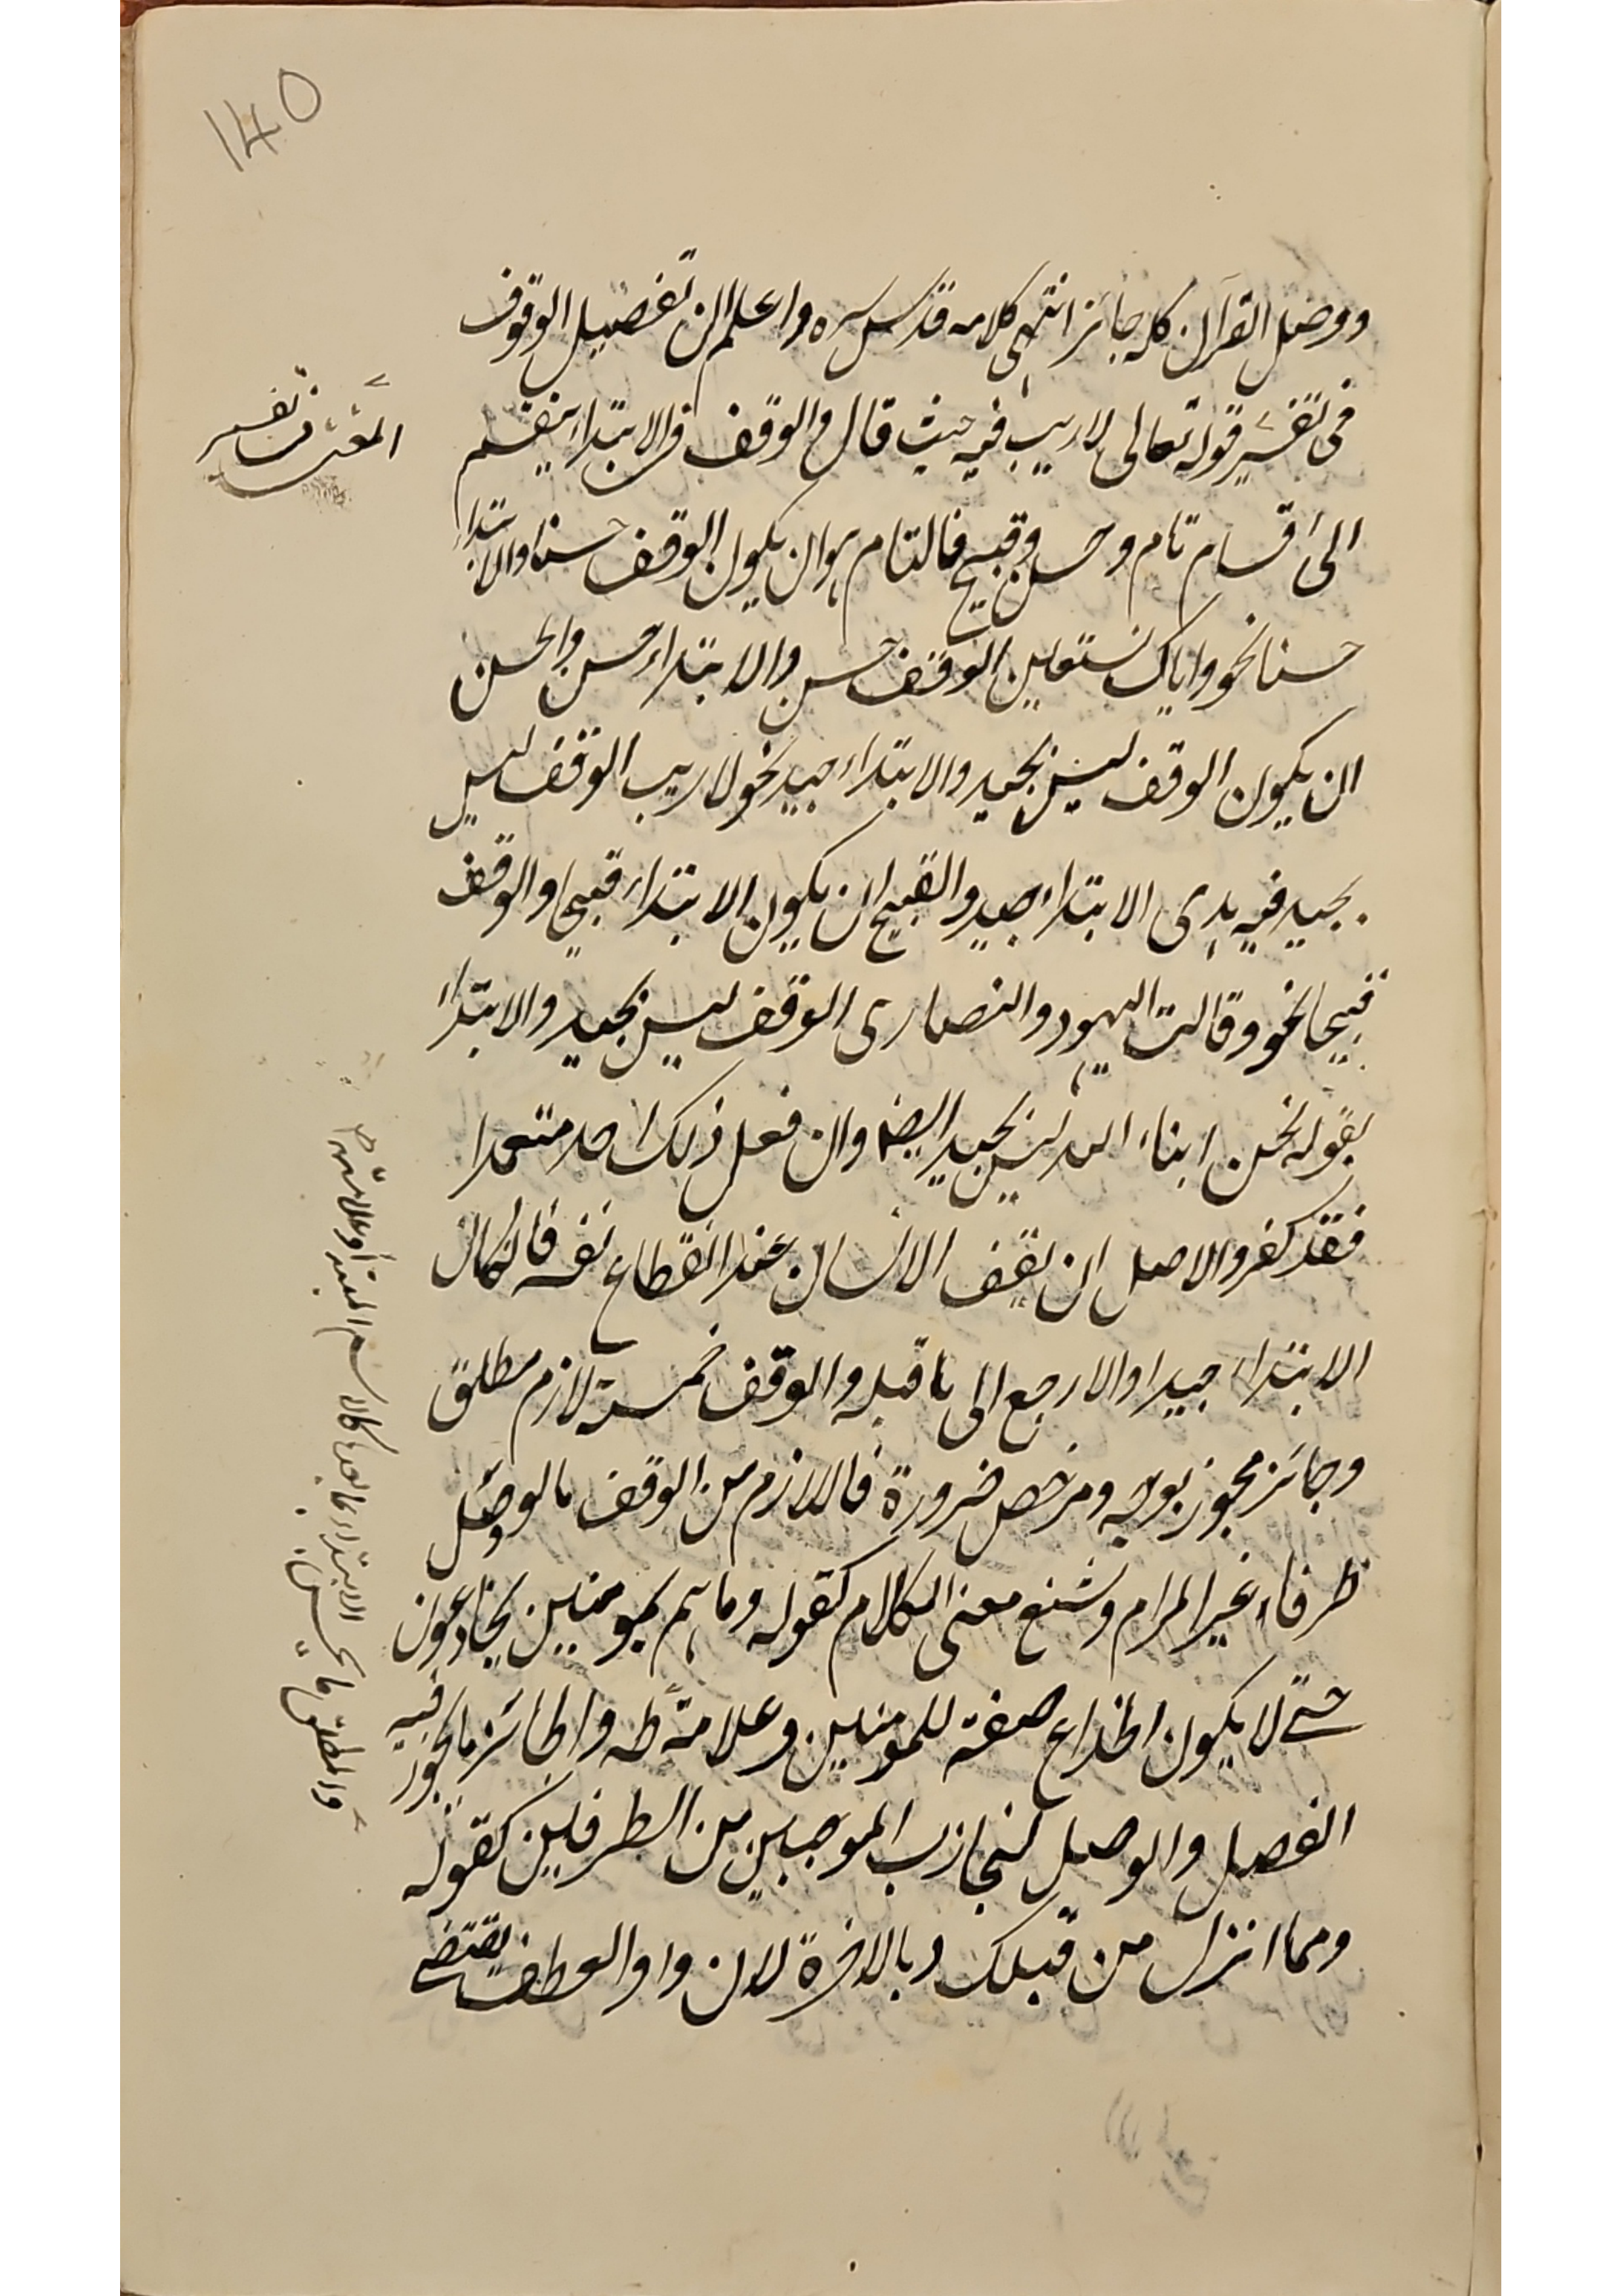 ۱۴۵
ووصل القرآن كله جائز انتهى كلامه قدس سره واعلم ان تفصيل الوقوف
فى تفسير قوله تعالى لا ريب فيه حيث قال والوقف والابتداء ينقسم
الى اقسام تام وحسن وقبيح فالتام هو ان يكون الوقف حسنا والابتداء
حسنا نحو واياك نستعين الوقف حسن والابتداء حسن والحسن
ان يكون الوقف ليس بجيد والابتداء جيد نحو لا ريب الوقف ليس
بجيد فيه هدى الابتداء جيد والقبيح ان يكون الابتداء قبيحا والوقف
قبيحا نحو وقالت اليهود والنصارى الوقف ليس بجيد والابتداء
بقوله نحن ابناء الله ليس بجيد ايضا وان فعل ذلك احد متعمدا
فقد كفر والاصل ان يقف الانسان عند انقطاع نفسه فان كان
الابتداء جيدا والا رجع الى ما قبله والوقف خمسة لازم مطلق
وجائز مجوز بوجه ومرخص ضرورة فاللازم من الوقف ما لو وصل
طرفاه غير المرام وشنع معنى الكلام كقوله وما هم بمومنين يخادعون
حتى لا يكون الخداع صفة للمومنين وعلامته ط والجائز ما يجوز فيه
الفصل والوصل لتجاذب الموجبين من الطرفين كقوله
وما انزل من قبلك وبالاخرة لان واو العطف يقتضى
تفسير
والمطلق ما يحسن الابتداء بما بعده كالاسم المبتدأ وعلامته